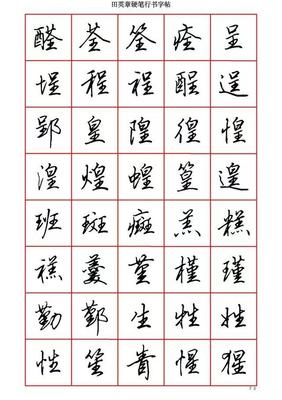 田英章硬笔行书字帖
醛 荃 筌 痊 呈
埕 程 裎 酲 逞
郢 皇 隍 徨 惶
湟 煌 蝗 篁 遑
班 斑 癍 羔 糕
禚 羹 堇 槿 瑾
勤 鄞 生 牲 姓
性 笙 青 惺 猩